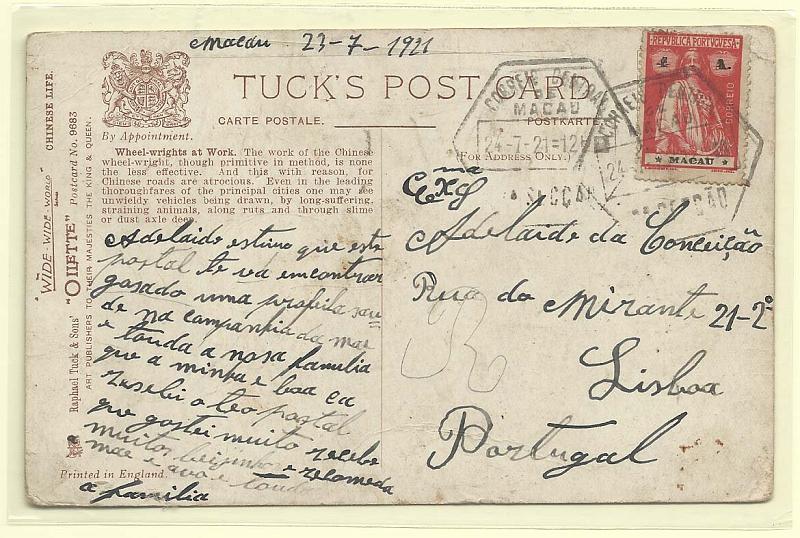 Macau 23-7-1921
TUCK'S POST CARD
CARTE POSTALE. POSTKARTE.
By Appointment.
(FOR ADDRESS ONLY.)
Wheel-wrights at Work. The work of the Chinese
wheel-wright, though primitive in method, is none
the less effective. And this with reason, for
Chinese roads are atrocious. Even in the leading
thoroughfares of the principal cities one may see
unwieldy vehicles being drawn, by long-suffering,
straining animals, along ruts and through slime
or dust axle deep.
Adelaide estimo que este
postal te vá encontrar
gosado uma profeita sau-
de na companhia da mae
e touda a nosa familia
que a minha e boa ca
resebi o teo postal
que gostei muito recebe
muitos beijinhos e recomeda
mae e avo e touda
a familia
Printed in England.
"WIDE-WIDE-WORLD" CHINESE LIFE.
Raphael Tuck & Sons' "OILETTE" Postcard No. 9683
ART PUBLISHERS TO THEIR MAJESTIES THE KING & QUEEN.
REPUBLICA PORTUGUESA
4 A.
CORREIO
MACAU
CORREIO CENTRAL
MACAU
24-7-21-12
SECÇÃO
Exma
Adelaide da Conceição
Rua do Mirante 21-2º
Lisboa
Portugal
R